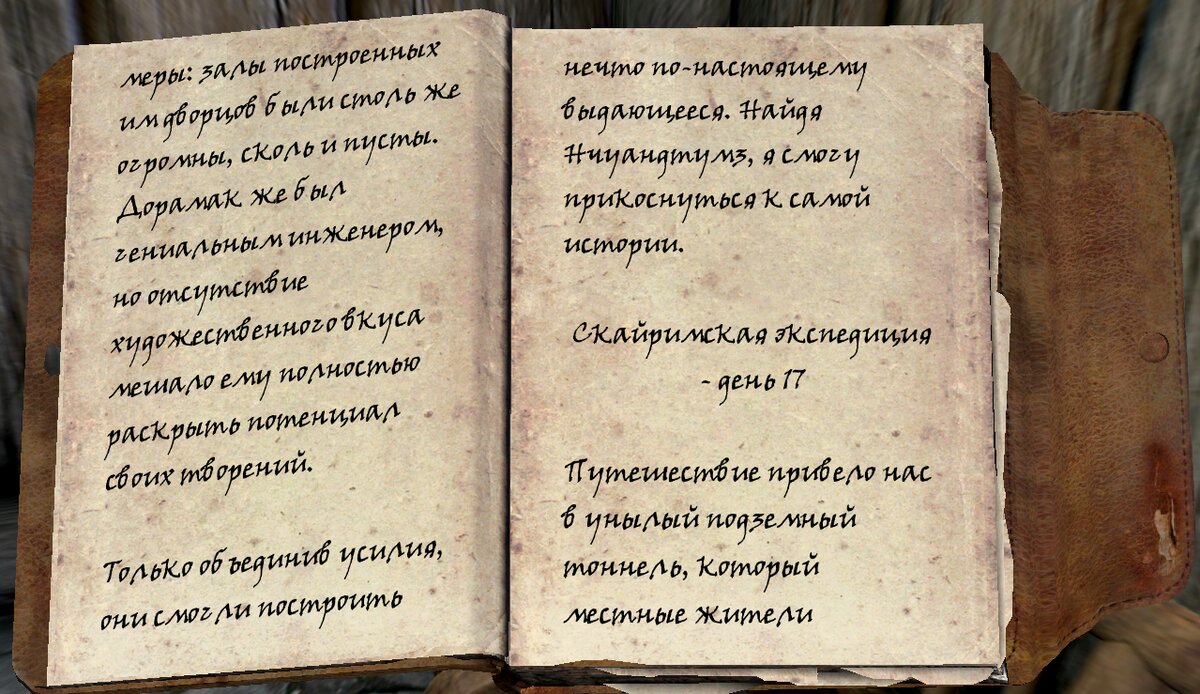 меры: залы построенных
им дворцов были столь же
огромны, сколь и пусты.
Дорамак же был
гениальным инженером,
но отсутствие
художественного вкуса
мешало ему полностью
раскрыть потенциал
своих творений.
Только объединив усилия,
они смогли построить
нечто по-настоящему
выдающееся. Найдя
Нчуандтумз, я смогу
прикоснуться к самой
истории.
Скайримская экспедиция
- день 17
Путешествие привело нас
в унылый подземный
тоннель, который
местные жители